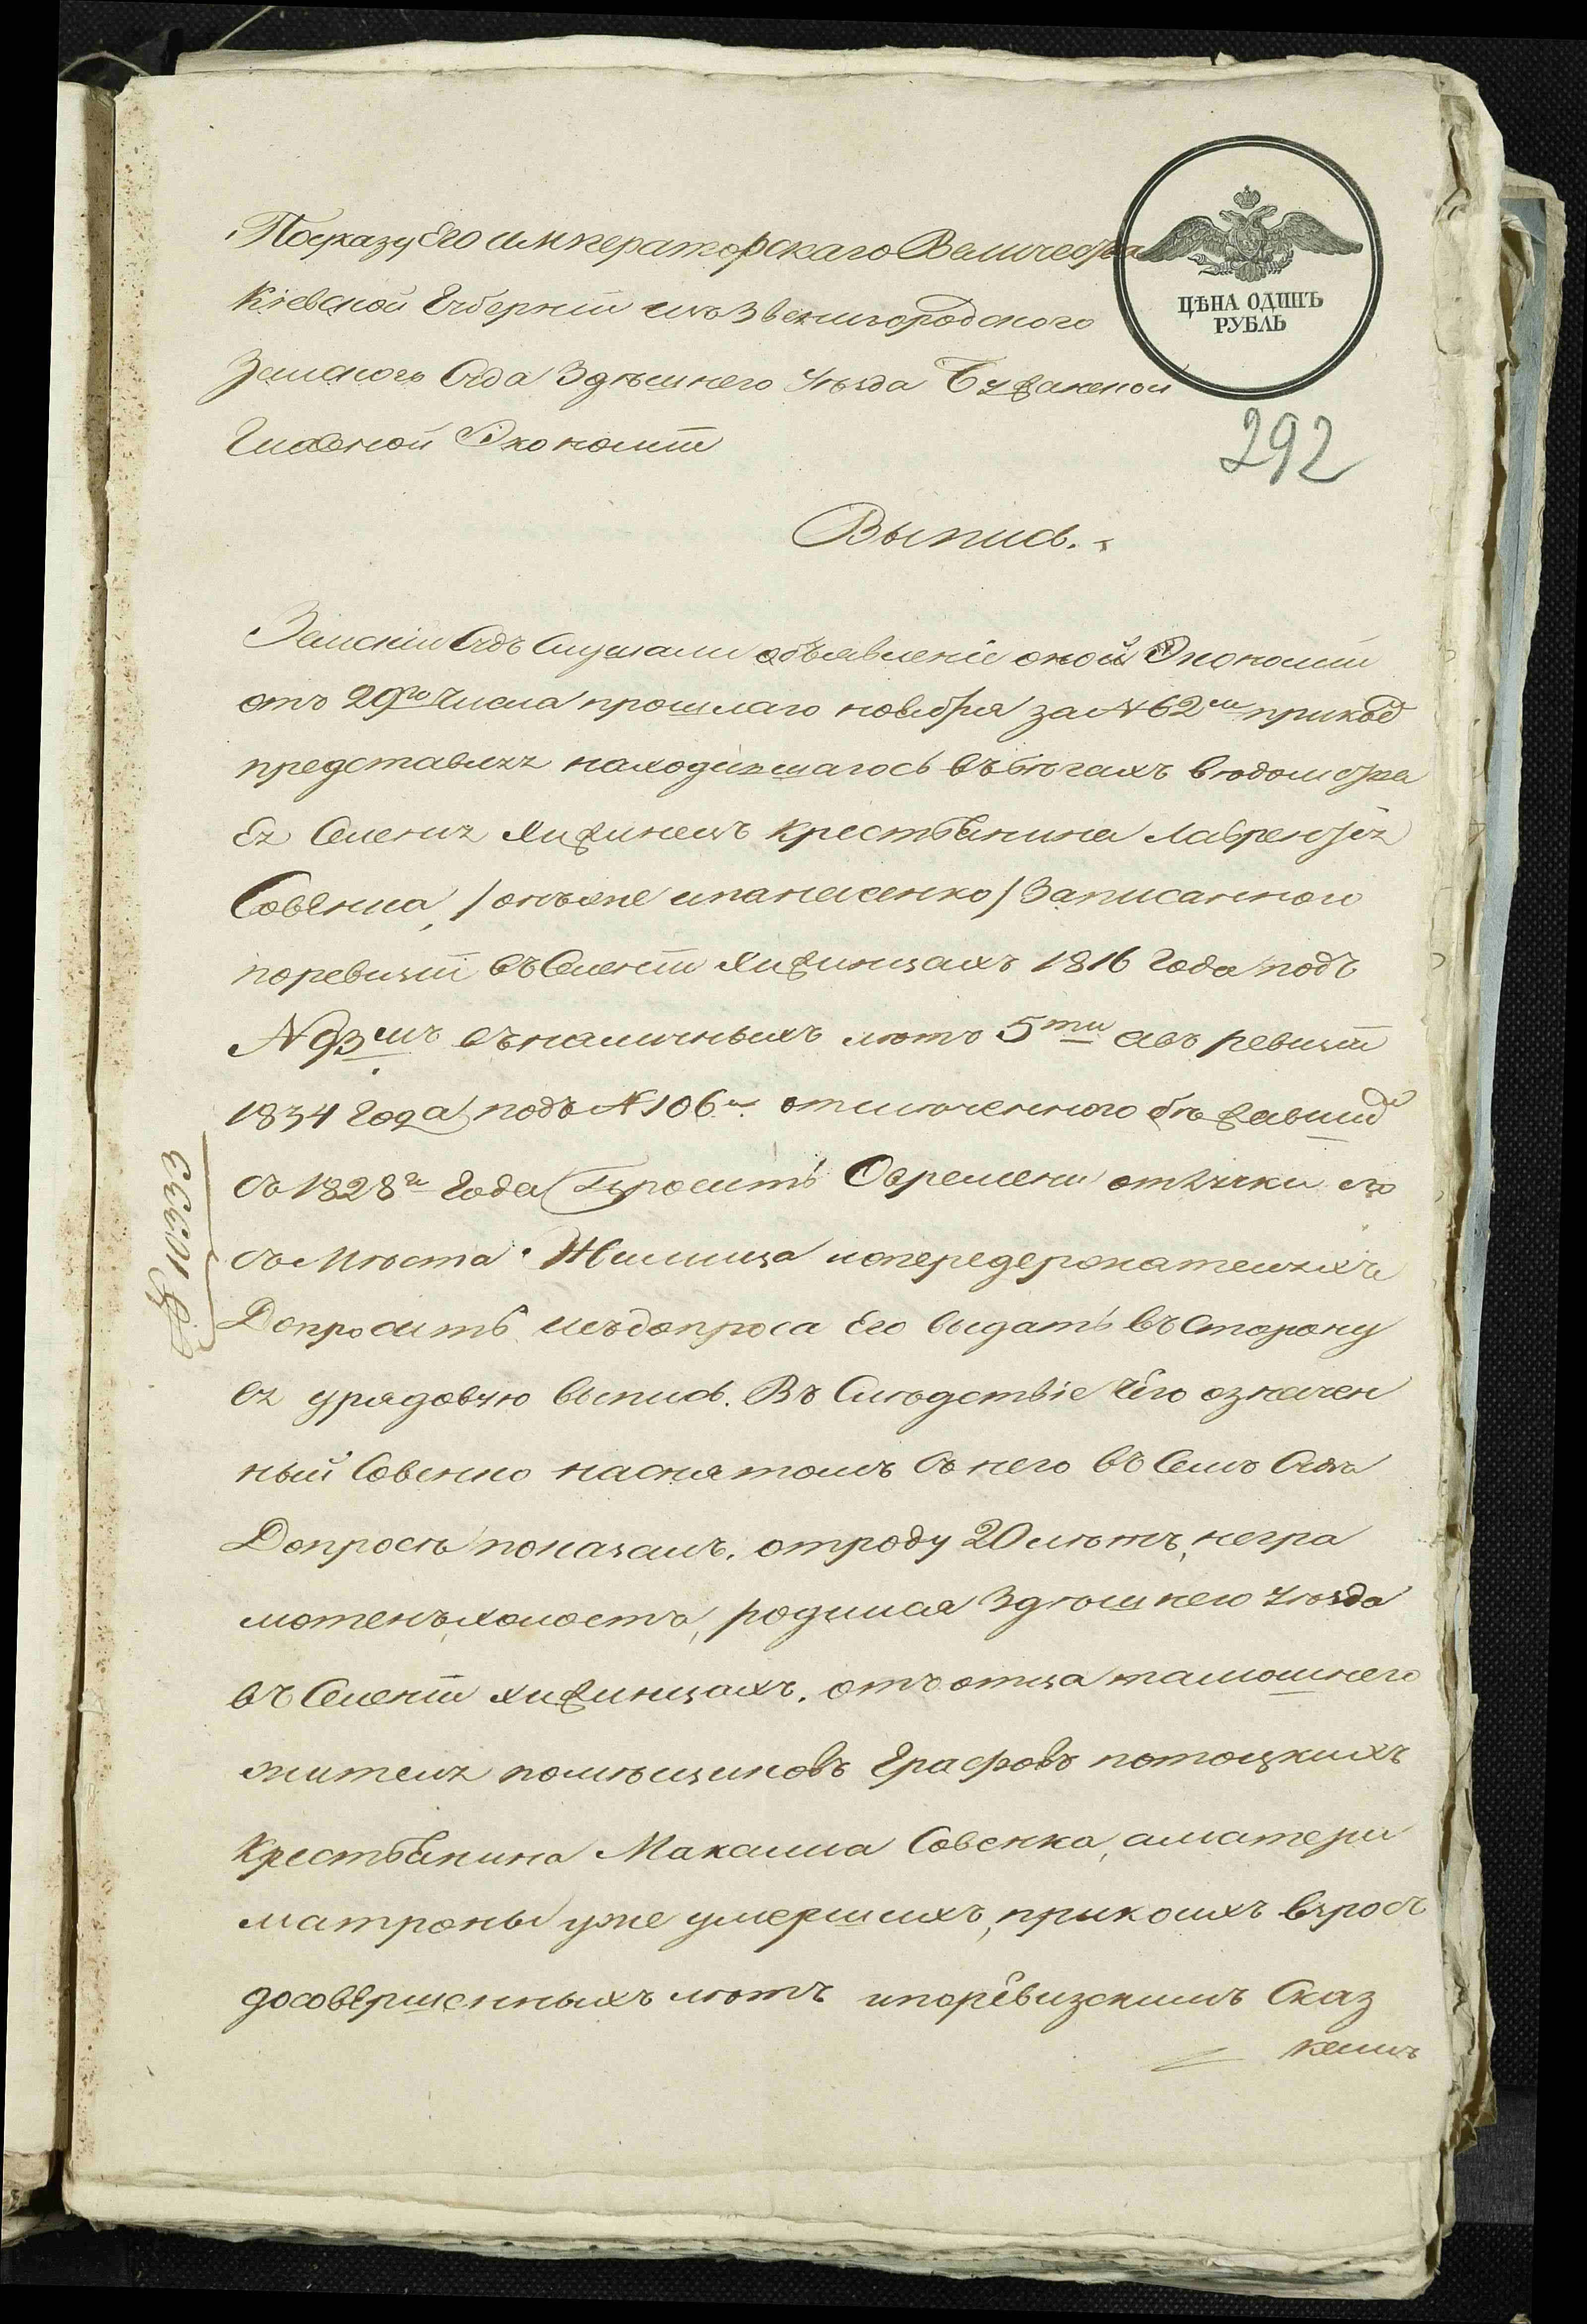 По указу Его императорскаго Величества
Кіевской Губерніи изъ Звенигородского
Земского Суда Здѣшнего Уѣзда Бужанской
Главной Экономіи
ЦѢНА ОДИНЪ
РУБЛЬ
292
Выпись.
Земскій Судъ Слушали объявленіе оной Экономіи
отъ 29го Числа прошлаго ноября за №62м при коѣ
представляя находившагося въ бѣгахъ
Селенія Хижинецъ крестьянина Лаврентія
Совенка, /онъ же и панасенко/ Записанного
по ревизіи въ Селеніи Хижинцахъ 1816 Года подъ
№93мъ въ наличныхъ лѣтъ 5ти а въ ревизіи
1834 Года подъ №106м отмеченного бѣжавшим
съ 1828г Года просить О времени отлучки его
съ Мѣста Жилища и о передержателяхъ
Допросить изъ допроса Его выдать въ Сторону
ея урядовую выпись. Въ Слѣдствіе Чего означен
ный Совенко на снятомъ съ него въ Семъ Судѣ
Допросѣ показалъ. отроду 20 лѣтъ, негра
мотенъ, холостъ, родился Здѣшнего Уѣзда
въ Селеніи Хижинцахъ. отъ отца тамошнего
жителя помѣщиковъ Графовъ потоцкихъ
Крестьянина Максима Совенка, а матери
матроны уже умершихъ, при коихъ взросъ
до совершенныхъ лѣтъ и по ревизскимъ Сказ
камъ